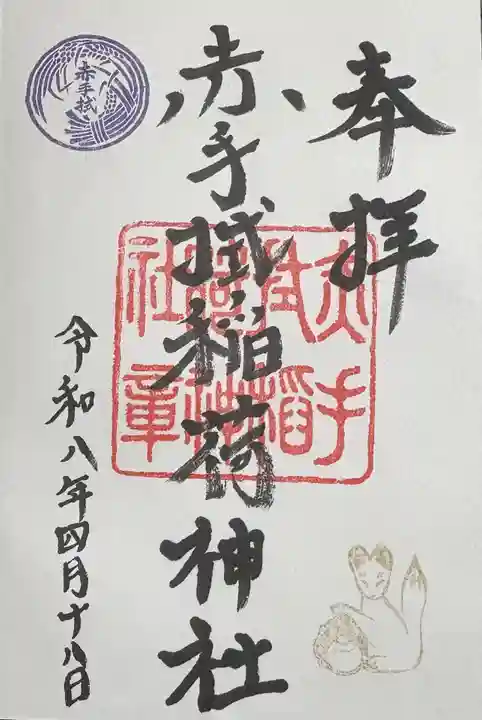 奉拝
赤手拭稲荷神社
令和八年四月十八日
赤手拭
赤手
拭稲
荷神
社章